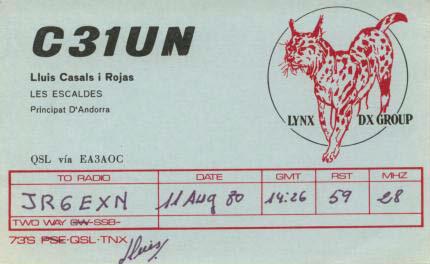 C31UN
Lluis Casals i Rojas
LES ESCALDES
Principat D'Andorra
LYNX DX GROUP
QSL vía EA3AOC
TO RADIO DATE GMT RST MHZ
JR6EXN 11 Aug 80 14:26 59 28
TWO WAY CW-SSB-
73'S PSE-QSL-TNX
Lluis